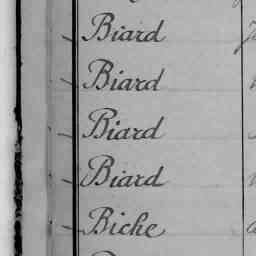 Biard
Biard
Biard
Biard
Biche